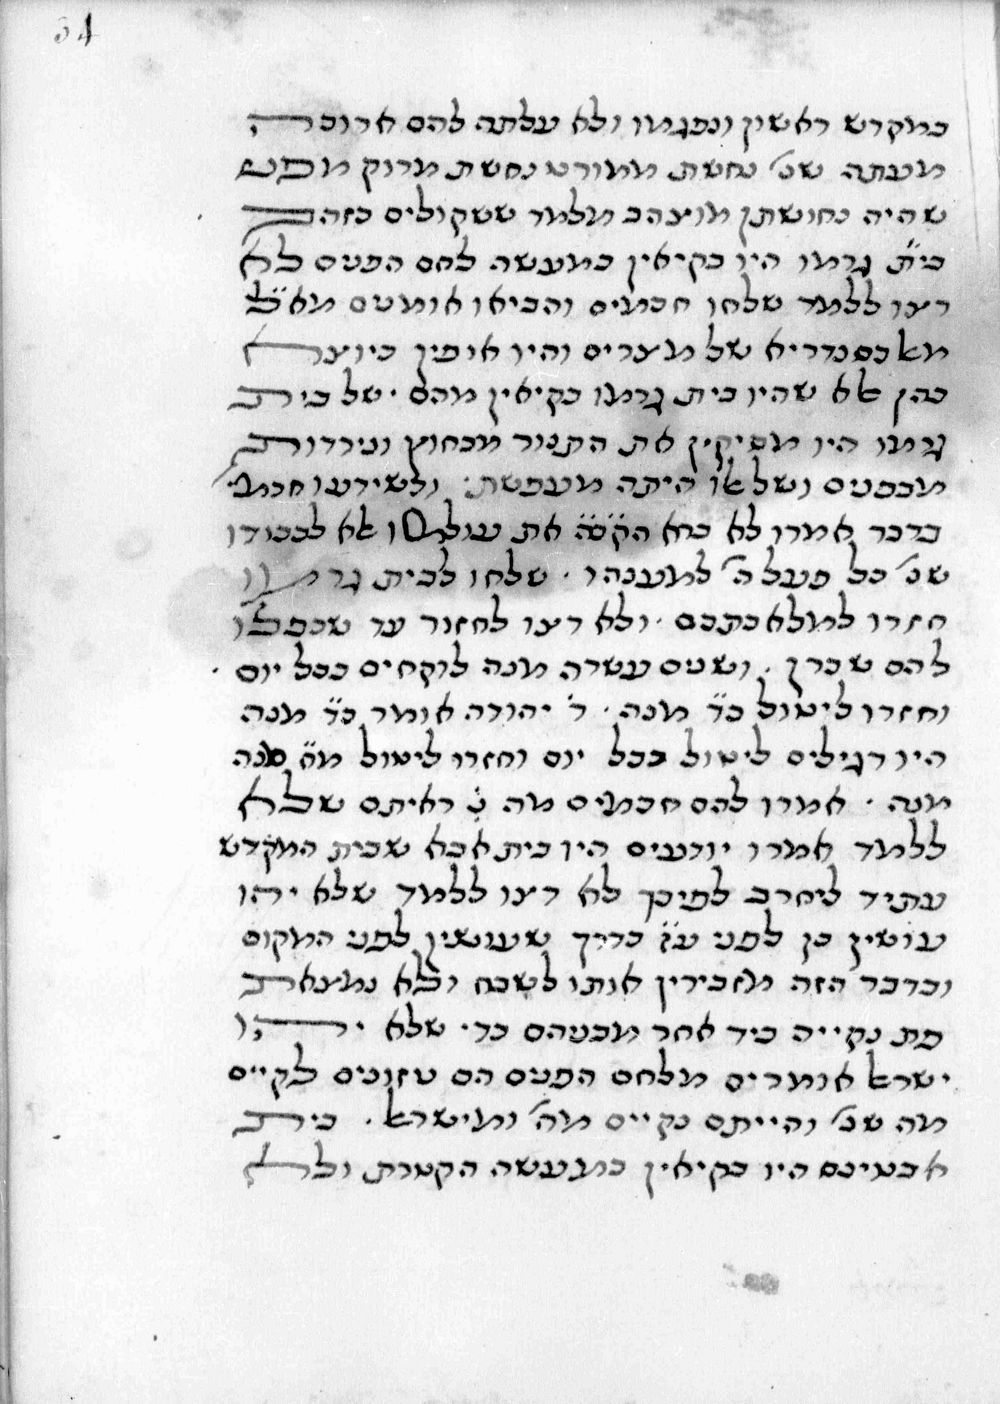 34
במקדש ראשין ונפגמו ולא עלתה להם ארוכה
מעתה שנ׳ נחשת ממורט נחשת מרוק מפנ
שהיה נחושתן מוצהב מלמד ששקולים כזהב
בי״ת גרמו היו בקיאין במעשה לחם הפנים לא
רצו ללמד שלחו חכמים והביאו אומנים מא״ל
מאלכסנדריא של מצרים והיו אופין כיוצא
בהן אלא שהיו בית גרמו בקיאין מהם . של בית
גרמו היו מסיקין את התנור מבחוץ ונירדות
מבפנים ושל אלו היתה מעפשת . ולשידעו חכמי׳
בדבר אמרו לא ברא הק׳ב׳ה את עולמו אלא לכבודו
שנ׳ כל פעל ה׳ למענהו . שלחו לבית גרמו
חזרו למלאכתכם . ולא רצו לחזור עד שכפלו
להם שכרן . ושנים עשרה מנה לוקחים בכל יום .
וחזרו ליטול כ״ד מנה . ר׳ יהודה אומר כ״ד מנה
היו רגילים ליטול בכל יום וחזרו ליטול מ״ח מנה
מנה . אמרו להם חכמים מה ראיתם שלא
ללמד אמרו יודעים היו בית אבא שבית המקדש
עתיד ליחרב לפיכך לא רצו ללמד שלא יהו
עושין כן לפני ע״ז כדרך שעושין לפני המקום
ובדבר הזה מזכירין אותו לשבח ולא נמצאת
פת נקייה ביד אחד מבניהם כדי שלא יהו
ישראל אומרים מלחם הפנים הם ניזונים לקיים
מה שנ׳ והייתם נקיים מה׳ ומישראל . בית
אבטינס היו בקיאין במעשה הקטרת ולא